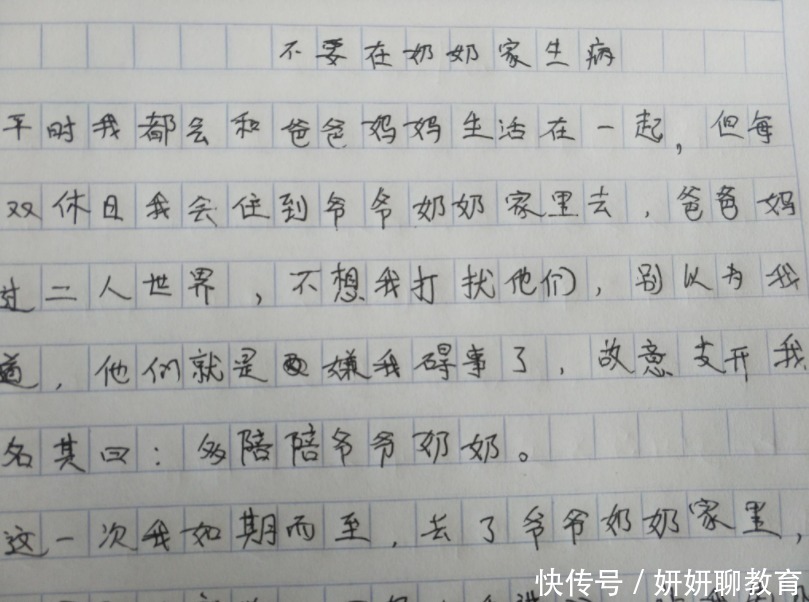 不要在奶奶家生病
平时我都会和爸爸妈妈生活在一起,但每
双休日我会住到爷爷奶奶家里去,爸爸妈
过二人世界,不想我打扰他们,别以为我
道,他们就是嫌我碍事了,故意支开我
名其曰:多陪陪爷爷奶奶。
这一次我如期而至,去了爷爷奶奶家里,
快传号/妍妍聊教育